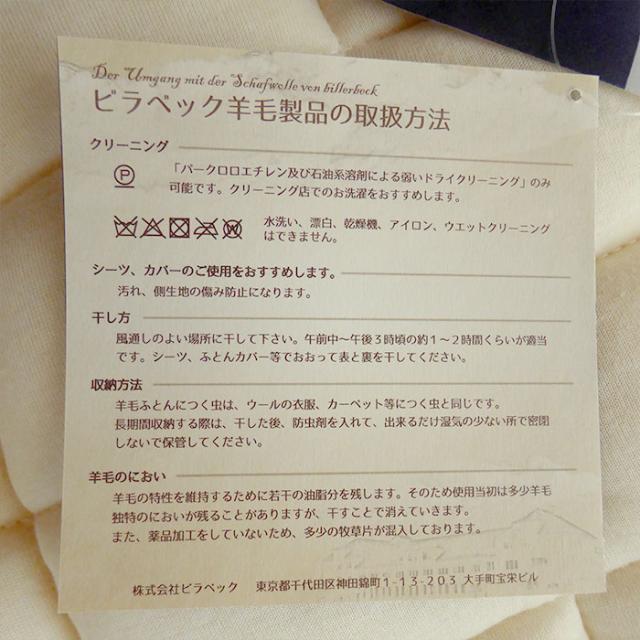 Der Umgang mit der Schafwolle von billerbeck
ビラベック羊毛製品の取扱方法
クリーニング
P
「パークロロエチレン及び石油系溶剤による弱いドライクリーニング」のみ
可能です。クリーニング店でのお洗濯をおすすめします。
水洗い、漂白、乾燥機、アイロン、ウエットクリーニング
はできません。
シーツ、カバーのご使用をおすすめします。
汚れ、側生地の傷み防止になります。
干し方
風通しのよい場所に干して下さい。午前中～午後３時頃の約１～２時間くらいが適当
です。シーツ、ふとんカバー等でおおって表と裏を干してください。
収納方法
羊毛ふとんにつく虫は、ウールの衣服、カーペット等につく虫と同じです。
長期間収納する際は、干した後、防虫剤を入れて、出来るだけ湿気の少ない所で密閉
しないで保管してください。
羊毛のにおい
羊毛の特性を維持するために若干の油脂分を残します。そのため使用当初は多少羊毛
独特のにおいが残ることがありますが、干すことで消えていきます。
また、薬品加工をしていないため、多少の牧草片が混入しております。
株式会社ビラベック 東京都千代田区神田錦町1-13-203 大手町宝栄ビル